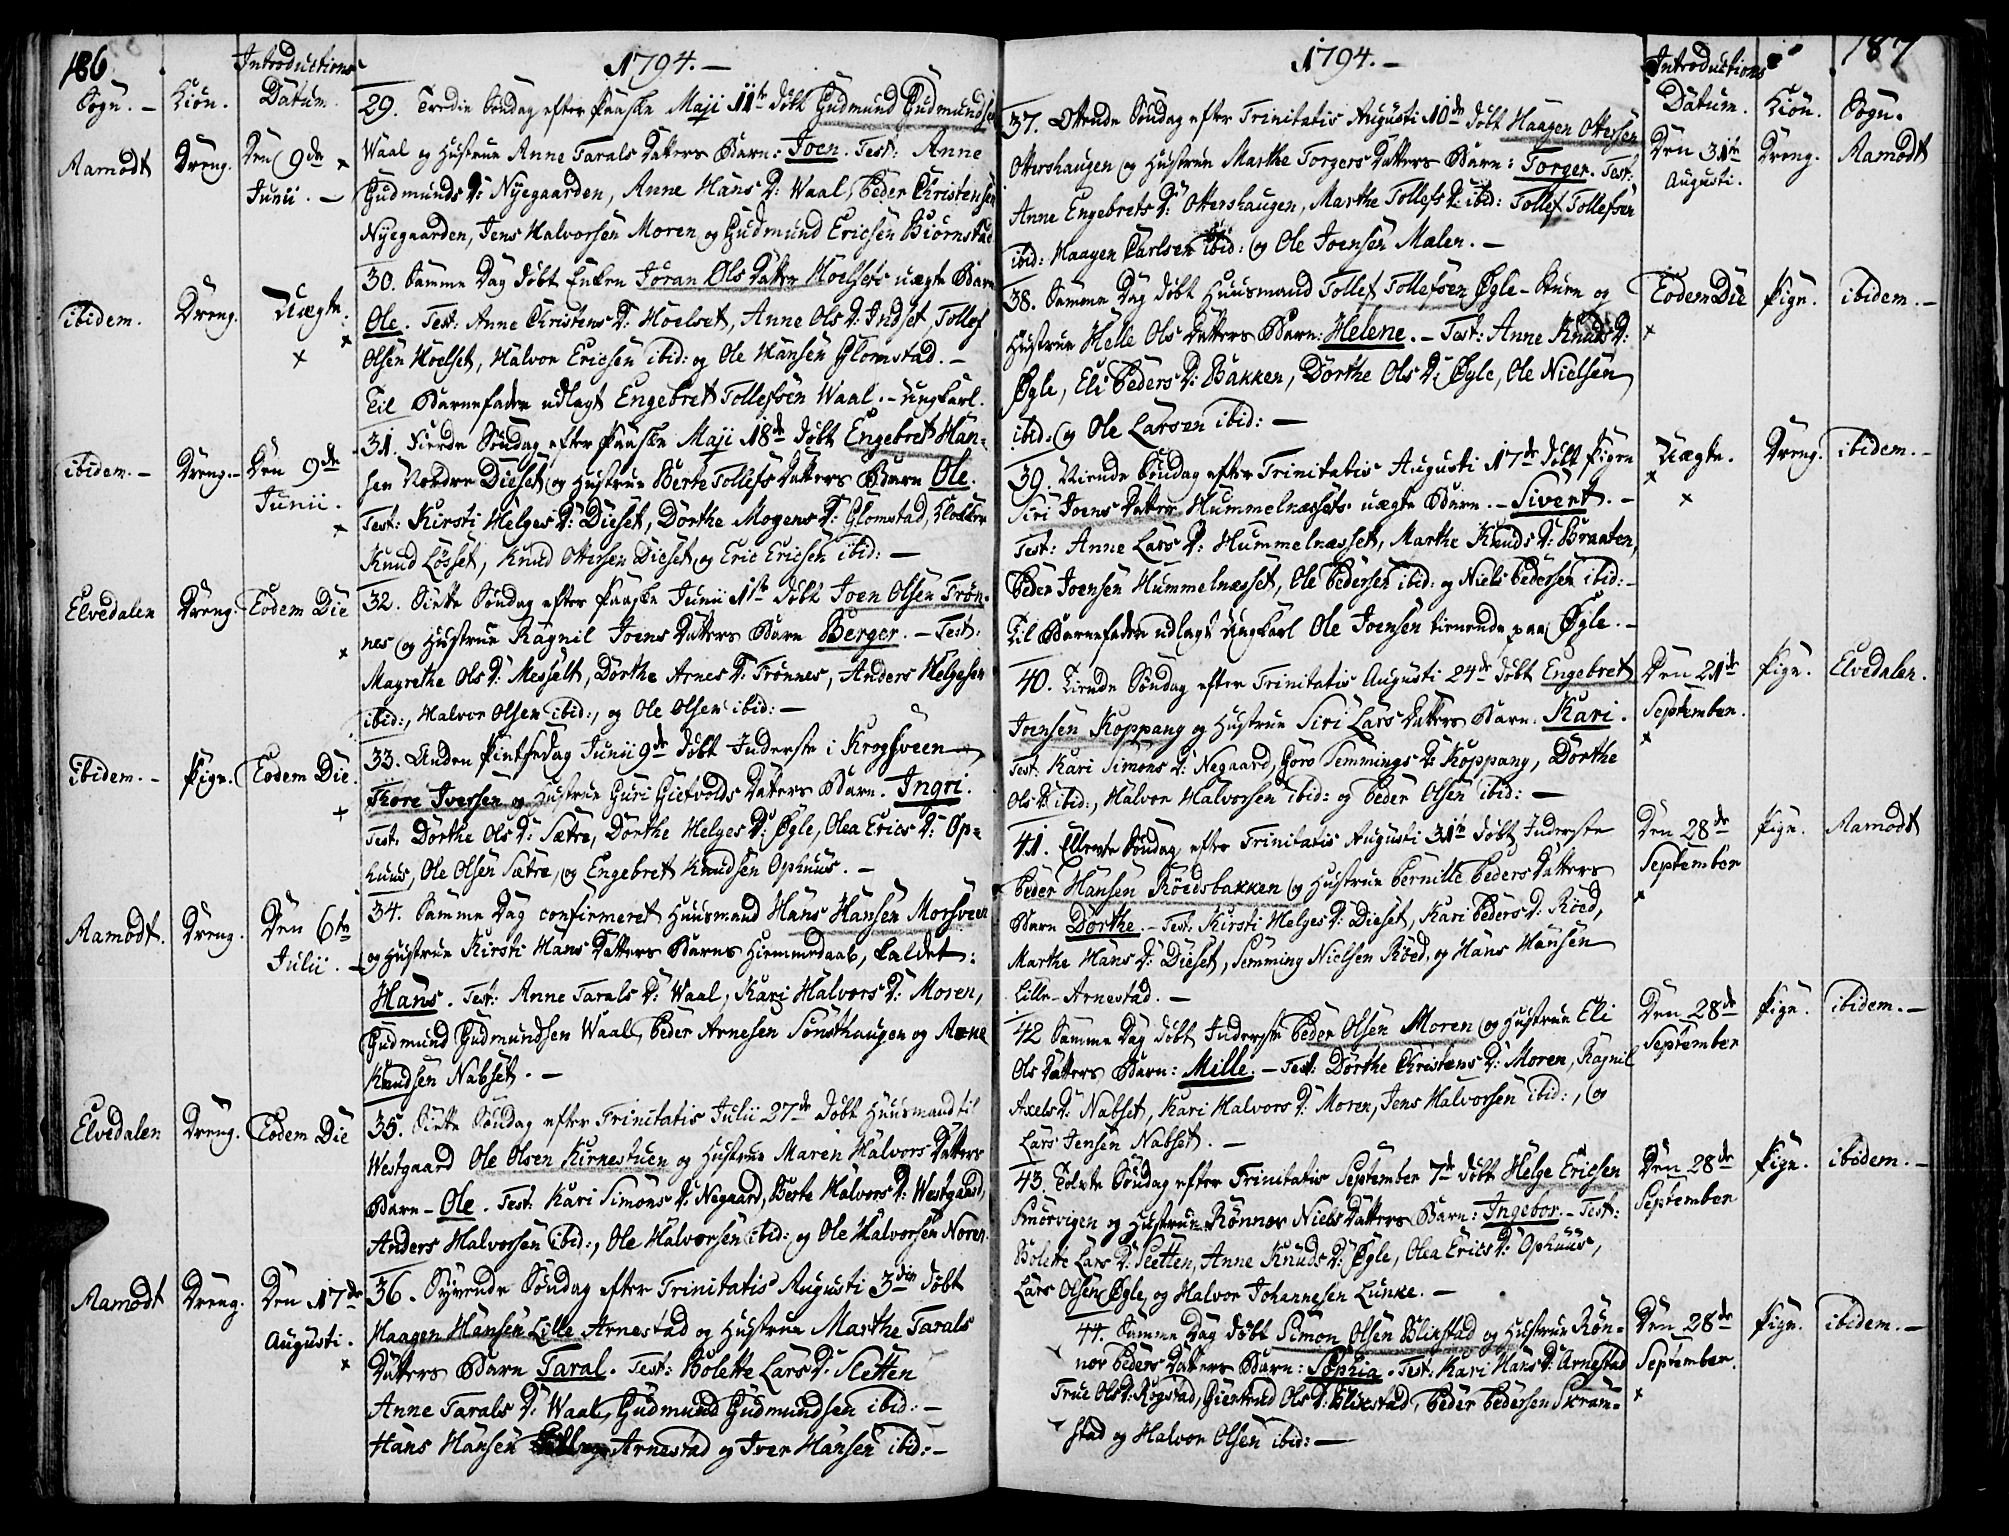 186.
1794.—
Introductions
Sogn. — Kiön. Datum.
29. Tredie Söndag efter Paaske Maji 11te döbt Gudmund Gudmundsen
Aamodt Dreng. Den 9de Junii. —
Waal og Hustrue Anne Tarals Datters Barn: Joen. Test: Anne
Gudmunds D: Nyegaarden, Anne Hans D: Waal, Peder Christensen
Nyegaarden, Jens Halvorsen Moren og Gudmund Ericsen Biörnstad
30. Samme Dag döbt Enken Joran Ols Datter Hoelsets uægte Barn
ibidem. Dreng. Uægte.
Ole. Test: Anne Christens D: Hoelset, Anne Ols D: Indset, Tollef
Olsen Hoelset, Halvor Ericsen ibid: og Ole Hansen Glomstad. —
Til Barnefader udlagt Engebret Tollefsen Waal. — Ungkarl.
31. Fierde Söndag efter Paaske Maji 18de döbt Engebret Han-
ibidem. — Dreng. — Den 9de Junii.
sen Nordre Dieset og Hustrue Berte Tollefs Datters Barn Ole.
Test: Kirsti Helges D: Dieset, Dorthe Mogens D: Glomstad, Klokker
Knud Lösset, Knud Ottersen Dieset og Eric Ericsen ibid: —
Elvedalen Dreng. Eodem Die
32. Siette Söndag efter Paaske Junii 1ste döbt Joen Olsen Trön-
nes og Hustrue Ragnil Joens Datters Barn Berger. — Test:
Magrethe Ols D: Messelt, Dorthe Arnes D: Trönnes, Anders Helgesen
ibid:, Halvor Olsen ibid:, og Ole Olsen ibid: —
33. Anden Pintsedag Junii 9de döbt Inderste i Krogsveen
ibidem. — Pige. Eodem Die.
Tore Iversen og Hustrue Guri Gietvolds Datters Barn. Ingri.
Test: Dorthe Ols D: Sætre, Dorthe Helges D: Øgle, Olea Erics D: Op-
huus, Ole Olsen Sætre, og Engebret Knudsen Ophuus. —
34. Samme Dag confirmeret Huusmand Hans Hansen Morsveen
Aamodt. Dreng. Den 6te Julii. —
og Hustrue Kirsti Hans Datters Barns Hiemmedaab, kaldet:
Hans. Test: Anne Tarals D: Waal, Kari Halvors D: Moren,
Gudmund Gudmundsen Waal, Peder Arnesen Sönsthaugen og Arne
Knudsen Nabset. —
35. Siette Söndag efter Trinitatis Julii 27de döbt Huusmand til
Elvedalen Dreng. Eodem Die
Westgaard Ole Olsen Kirnestuen og Hustrue Maren Halvors Datters
Barn — Ole. Test: Kari Simons D: Negaard, Berte Halvors D: Westgaard,
Anders Halvorsen ibid:, Ole Halvorsen ibid: og Ole Halvorsen Noren.
Aamodt Dreng. Den 17de Augusti.
36. Syvende Söndag efter Trinitatis Augusti 3die döbt
Haagen Hansen Lille Arnestad og Hustrue Marthe Tarals
Datters Barn Taral. Test: Bolette Lars D: Sletten
Anne Tarals D: Waal, Gudmund Gudmundsen ibid: —
Hans Hansen Arnestad og Iver Hansen ibid: —
1794. —
187
Introductions
Datum. Kiön. Sogn.
37. Ottende Söndag efter Trinitatis Augusti 10de döbt Haagen Ottersen
Den 31te Augusti. Dreng. Aamodt
Ottershaugen og Hustrue Marthe Torgers Datters Barn: Torger. Test:
Anne Engebrets D: Ottershaugen, Marthe Tollefs D: ibid: Tollef Tollefsen
ibid: Haagen Carlsen ibid: og Ole Joensen Malen. —
38. Samme Dag döbt Huusmand Tollef Tollefsen Øgle-Stuen og
Eodem Die Pige. ibidem. —
Hustrue Helle Ols Datters Barn: Helene. — Test: Anne Knuds D:
Øgle, Eli Peders D: Bakken, Dorthe Ols D: Øgle, Ole Nielsen
ibid: og Ole Larsen ibid: —
39. Niende Söndag efter Trinitatis Augusti 17de döbt Pigen
Uægte. Dreng. ibidem. —
Siri Joens Datter Hummelnæssets uægte Barn. — Sivert. —
Test: Anne Lars D: Hummelnæsset, Marthe Knuds D: Braaten,
Peder Joensen Hummelnæsset, Ole Pedersen ibid: og Niels Pedersen ibid: —
Til Barnefader udlagt Ungkarl Ole Joensen tienende paa Øgle. —
40. Tiende Söndag efter Trinitatis Augusti 24de döbt Engebret
Den 21de September. Pige. Elvedalen.
Joensen Koppang og Hustrue Siri Lars Datters Barn. Kari.
Test: Kari Simons D: Negaard, Goro Semmings D: Koppang, Dorthe
Ols D: ibid:, Halvor Halvorsen ibid: og Peder Olsen ibid: —
41. Ellevte Söndag efter Trinitatis Augusti 31te döbt Inderste
Den 28de September Pige. Aamodt
Peder Hansen Röedsbakken og Hustrue Pernille Peders Datters
Barn Dorthe. — Test: Kirsti Helges D: Dieset, Kari Peders D: Röed,
Marthe Hans D: Dieset, Semming Nielsen Röed, og Hans Hansen
Lille-Arnestad. —
42 Samme Dag döbt Inderste Peder Olsen Moren og Hustrue Eli
Den 28de September Pige. ibidem. —
Ols Datters Barn: Mille. — Test: Dorthe Christens D: Moren, Ragnil
Axels D: Nabset, Kari Halvors D: Moren, Jens Halvorsen ibid:, og
Lars Jensen Nabset. —
43. Tolvte Söndag efter Trinitatis September 7de döbt Helge Ericsen
Den 28de September Pige. ibidem. —
Snöevigen og Hustrue Rönnov Niels Datters Barn: Ingebor. — Test:
Bolette Lars D: Sletten, Anne Knuds D: Øgle, Olea Erics D: Ophuus,
Lars Olsen Øgle og Halvor Johannesen Lunke. —
44. Samme Dag döbt Simon Olsen Blikstad og Hustrue Rön-
Den 28de September. Pige. ibidem. —
nov Peders Datters Barn: Sophia. Test: Kari Hans D: Arnestad
True Ols D: Rogstad, Giertrud Ols D: Blikstad, Peder Pedersen Skram-
stad og Halvor Olsen ibid: —